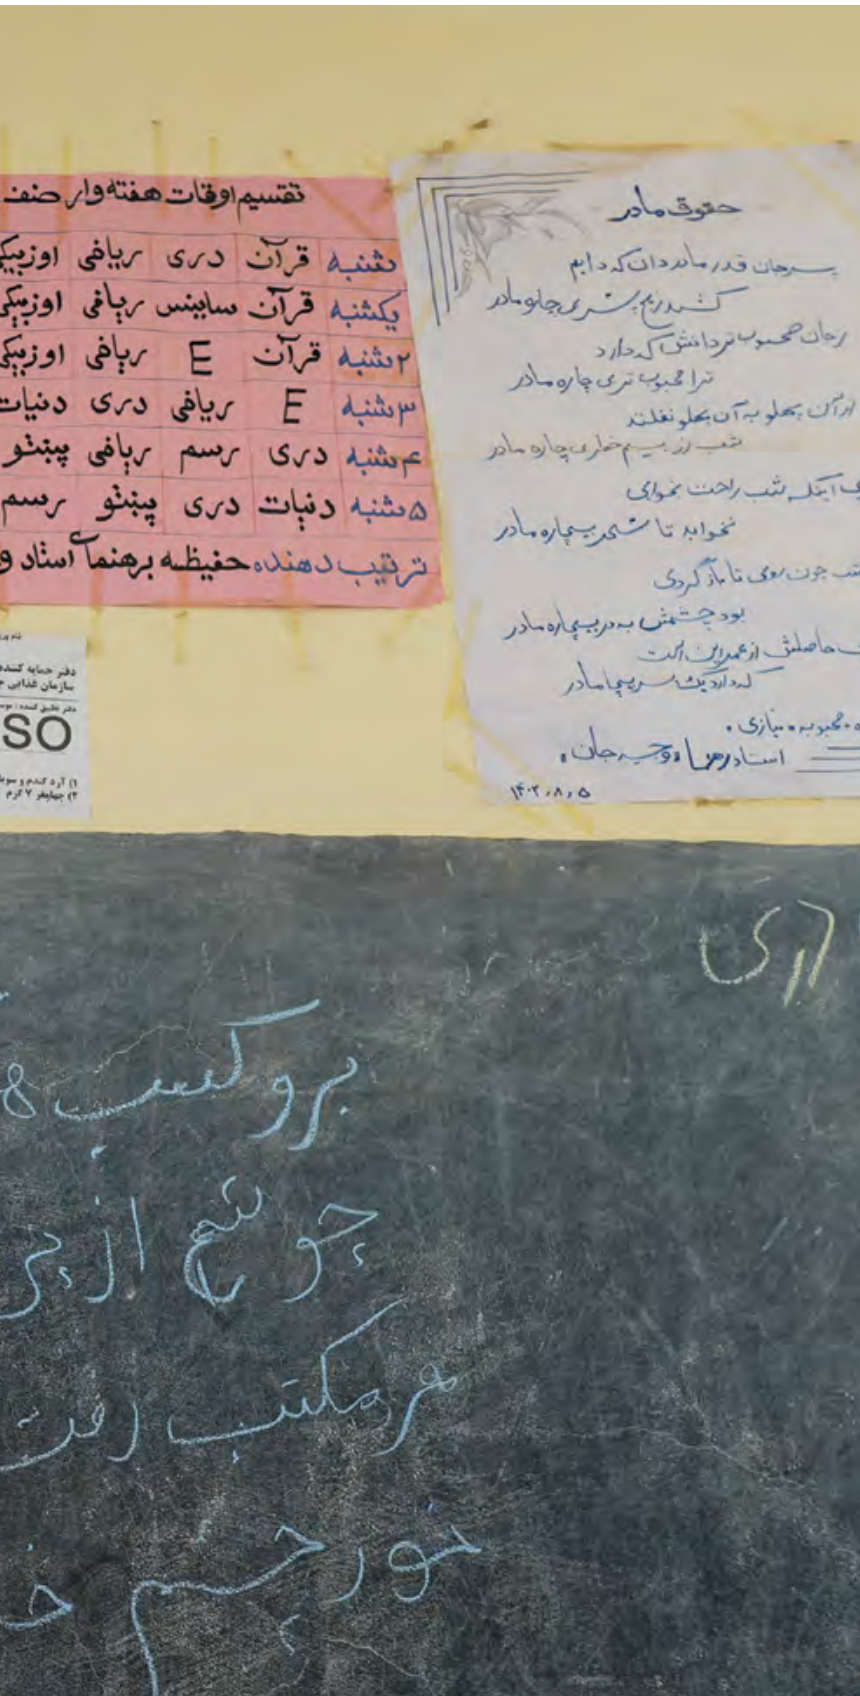 تقسیم اوقات هفته وار صنف
شنبه قرآن دری ریاضی اوزبیکی
یکشنبه قرآن ساینس ریاضی اوزبیکی
۲شنبه قرآن E ریاضی اوزبیکی
۳شنبه E ریاضی دری دنیات
۴شنبه دری رسم ریاضی پښتو
۵شنبه دنیات دری پښتو رسم
ترتیب دهنده حفیظه برهنمای استاد و
دفتر حمایه کننده
سازمان غذایی
SO
۱) آرد گندم و
۲) ۷ گرم
حقوق مادر
پسرجان قدر مادر دان که دایم
کشد رنج پسر بیچاره مادر
محبوب تر دانش که دارد
ترا محبوب تر بیچاره مادر
از آن پهلو به آن پهلو نغلتد
شب از بیم خطر بیچاره مادر
اینکه شب راحت بخوابی
نخوابد تا سحر بیچاره مادر
چون روی تا باز گردی
بود چشمش به در بیچاره مادر
حاصلش از عمر این است
که دارد یک پسر بیچاره مادر
محبوبه نیازی
استاد رهنما جان
۱۴۰۲،۸،۵
دری
برو کسب
چو شمع از
هر مکتب رفت
نور چشم